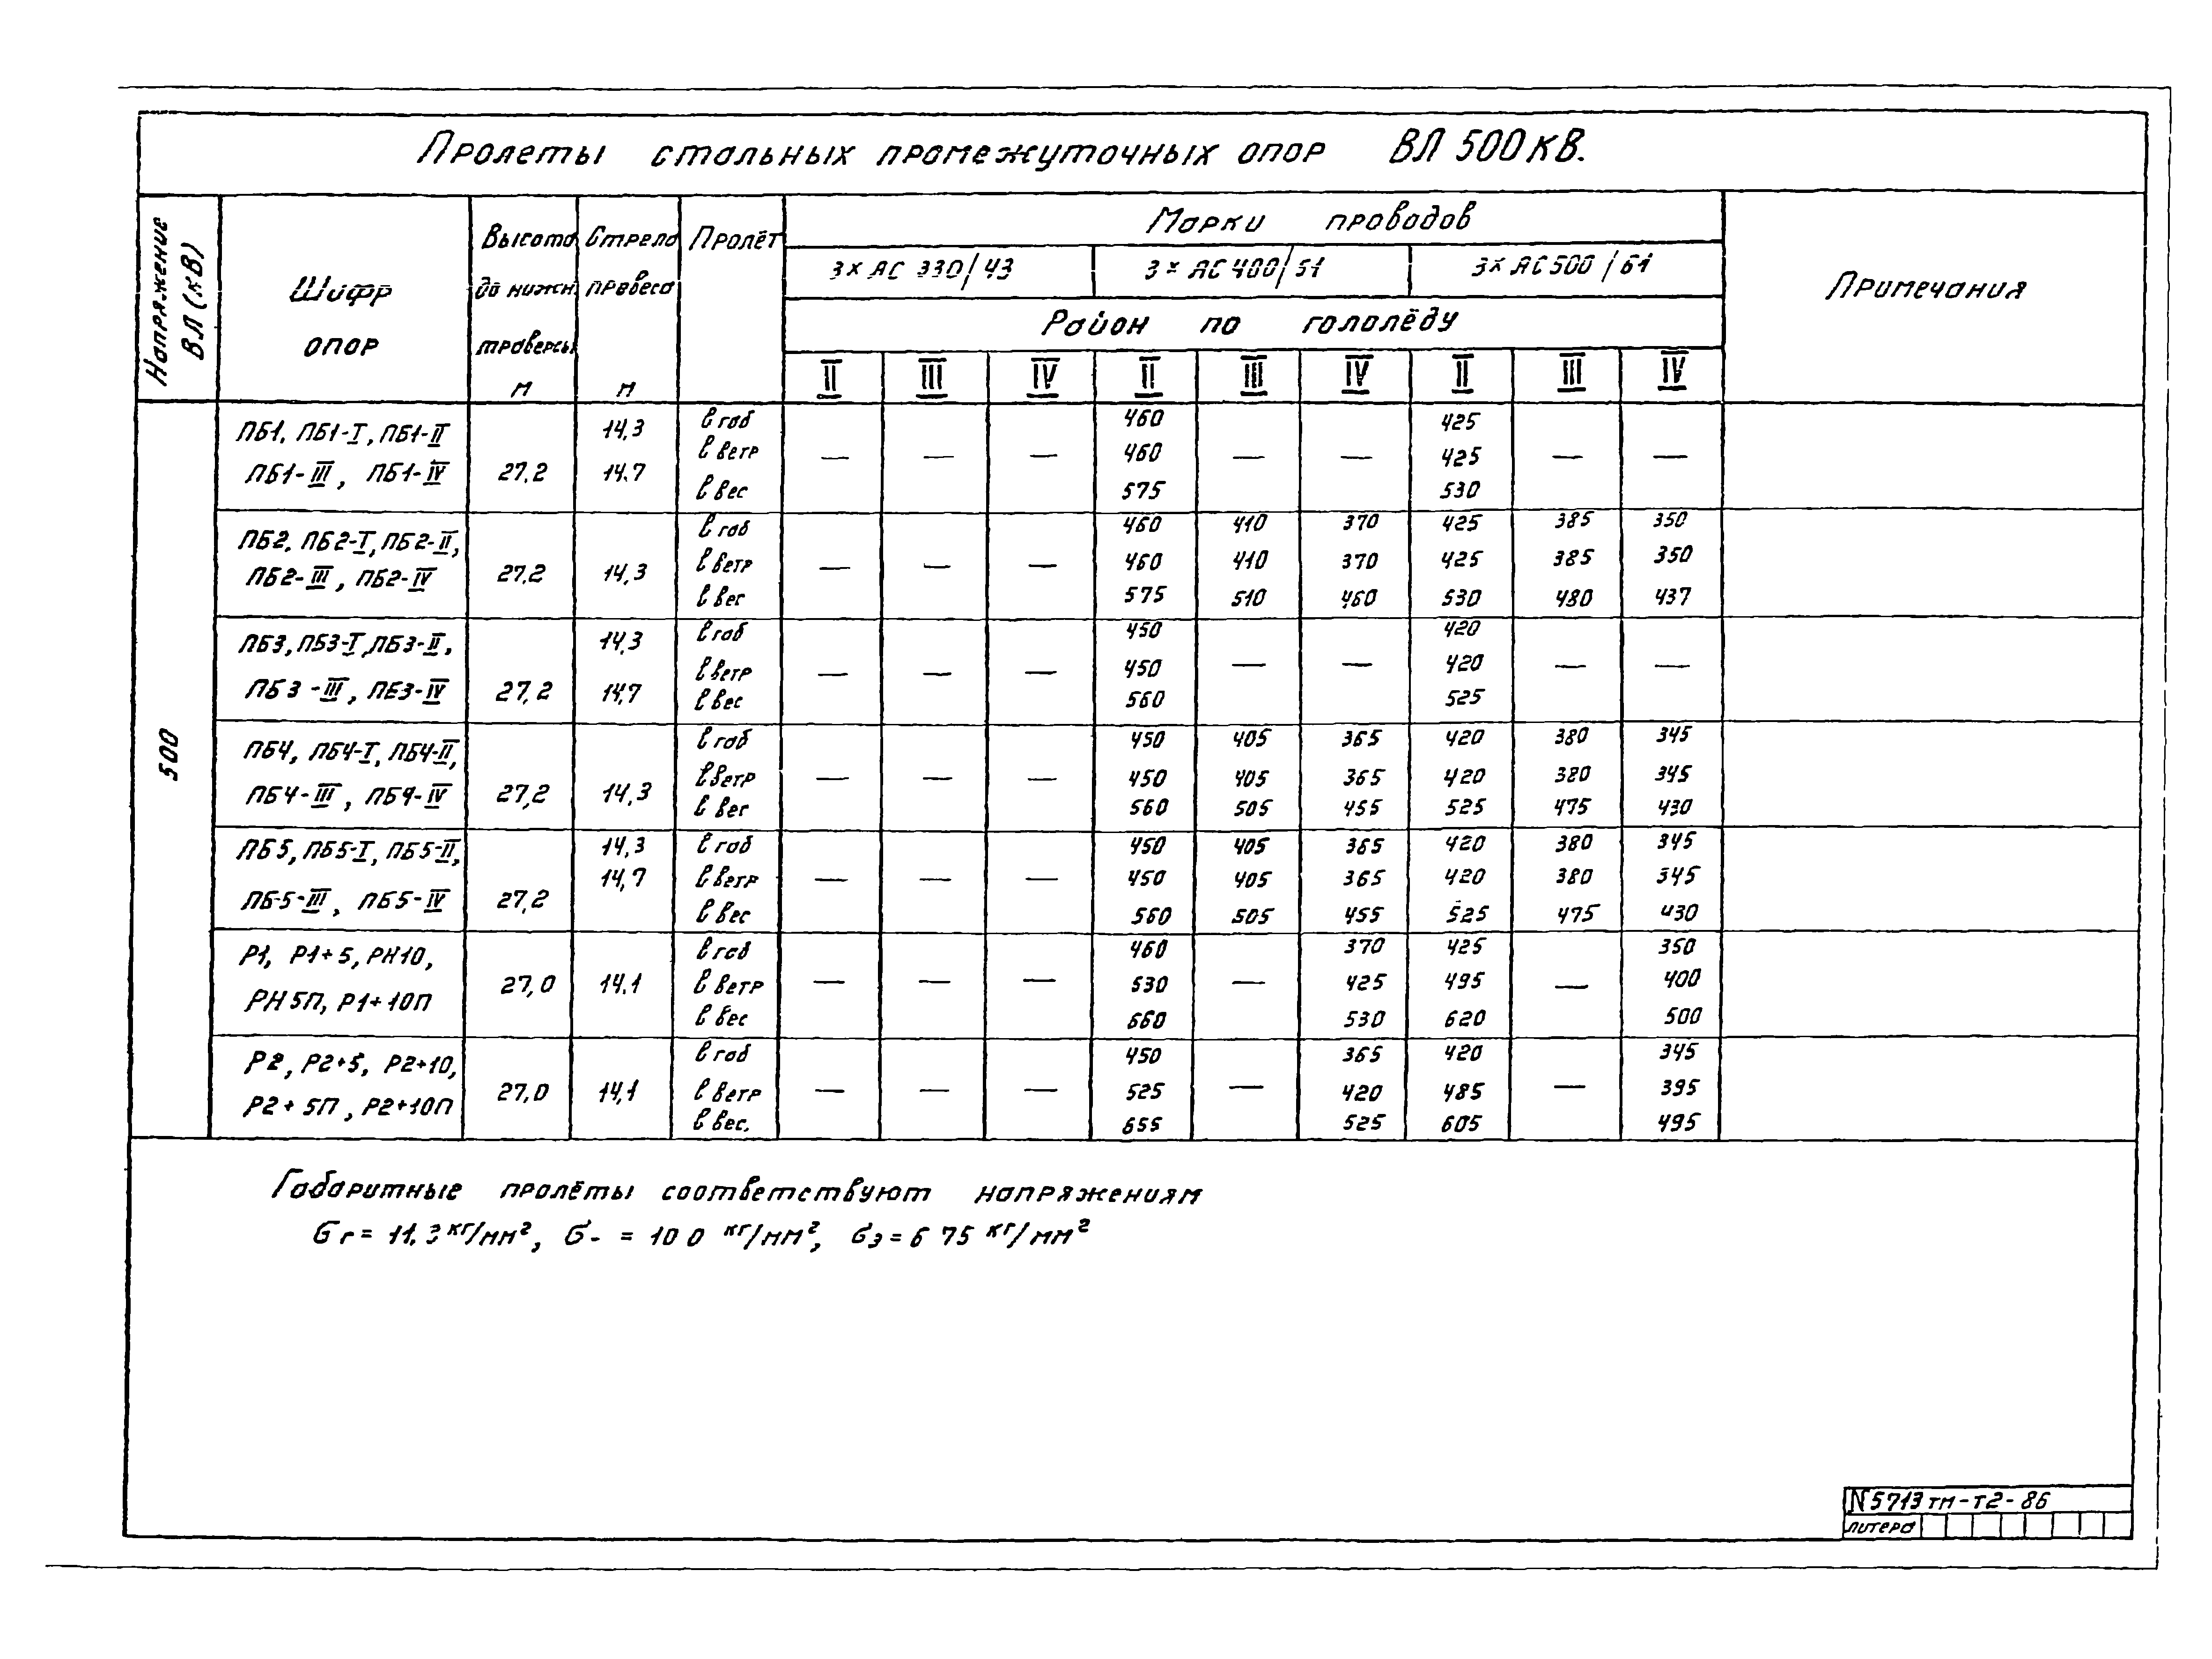 Пролеты стальных промежуточных опор ВЛ 500 кВ.
Напряжение ВЛ (кВ)
Шифр опор
Высота до нижн. траверсы м
Стрела провеса м
Пролёт
Марки проводов
Примечания
3× АС 330/43 3× АС 400/51 3× АС 500/61
Район по гололёду
II III IV II III IV II III IV
500
ПБ1, ПБ1-I, ПБ1-II 14,3 l габ 460 425
l ветр — — — 460 — — 425 — —
ПБ1-III, ПБ1-IV 27,2 14,7 l вес 575 530
ПБ2, ПБ2-I, ПБ2-II, l габ 460 410 370 425 385 350
l ветр — — — 460 410 370 425 385 350
ПБ2-III, ПБ2-IV 27,2 14,3 l вес 575 510 460 530 480 437
ПБ3, ПБ3-I, ПБ3-II, 14,3 l габ 450 420
l ветр — — — 450 — — 420 — —
ПБ3-III, ПБ3-IV 27,2 14,7 l вес 560 525
ПБ4, ПБ4-I, ПБ4-II, l габ 450 405 365 420 380 345
l ветр — — — 450 405 365 420 380 345
ПБ4-III, ПБ4-IV 27,2 14,3 l вес 560 505 455 525 475 430
ПБ5, ПБ5-I, ПБ5-II, 14,3 l габ 450 405 365 420 380 345
14,7 l ветр — — — 450 405 365 420 380 345
ПБ-5-III, ПБ5-IV 27,2 l вес 560 505 455 525 475 430
Р1, Р1+5, РН10, l габ 460 370 425 350
27,0 14,1 l ветр — — — 530 — 425 495 — 400
РН5П, Р1+10П l вес 660 530 620 500
Р2, Р2+5, Р2+10, l габ 450 365 420 345
27,0 14,1 l ветр — — — 525 — 420 485 — 395
Р2+5П, Р2+10П l вес. 655 525 605 495
Габаритные пролёты соответствуют напряжениям
σг = 11.3 кг/мм², σ- = 10 0 кг/мм², σэ = 6 75 кг/мм²
N5713тм-т2-86
литера